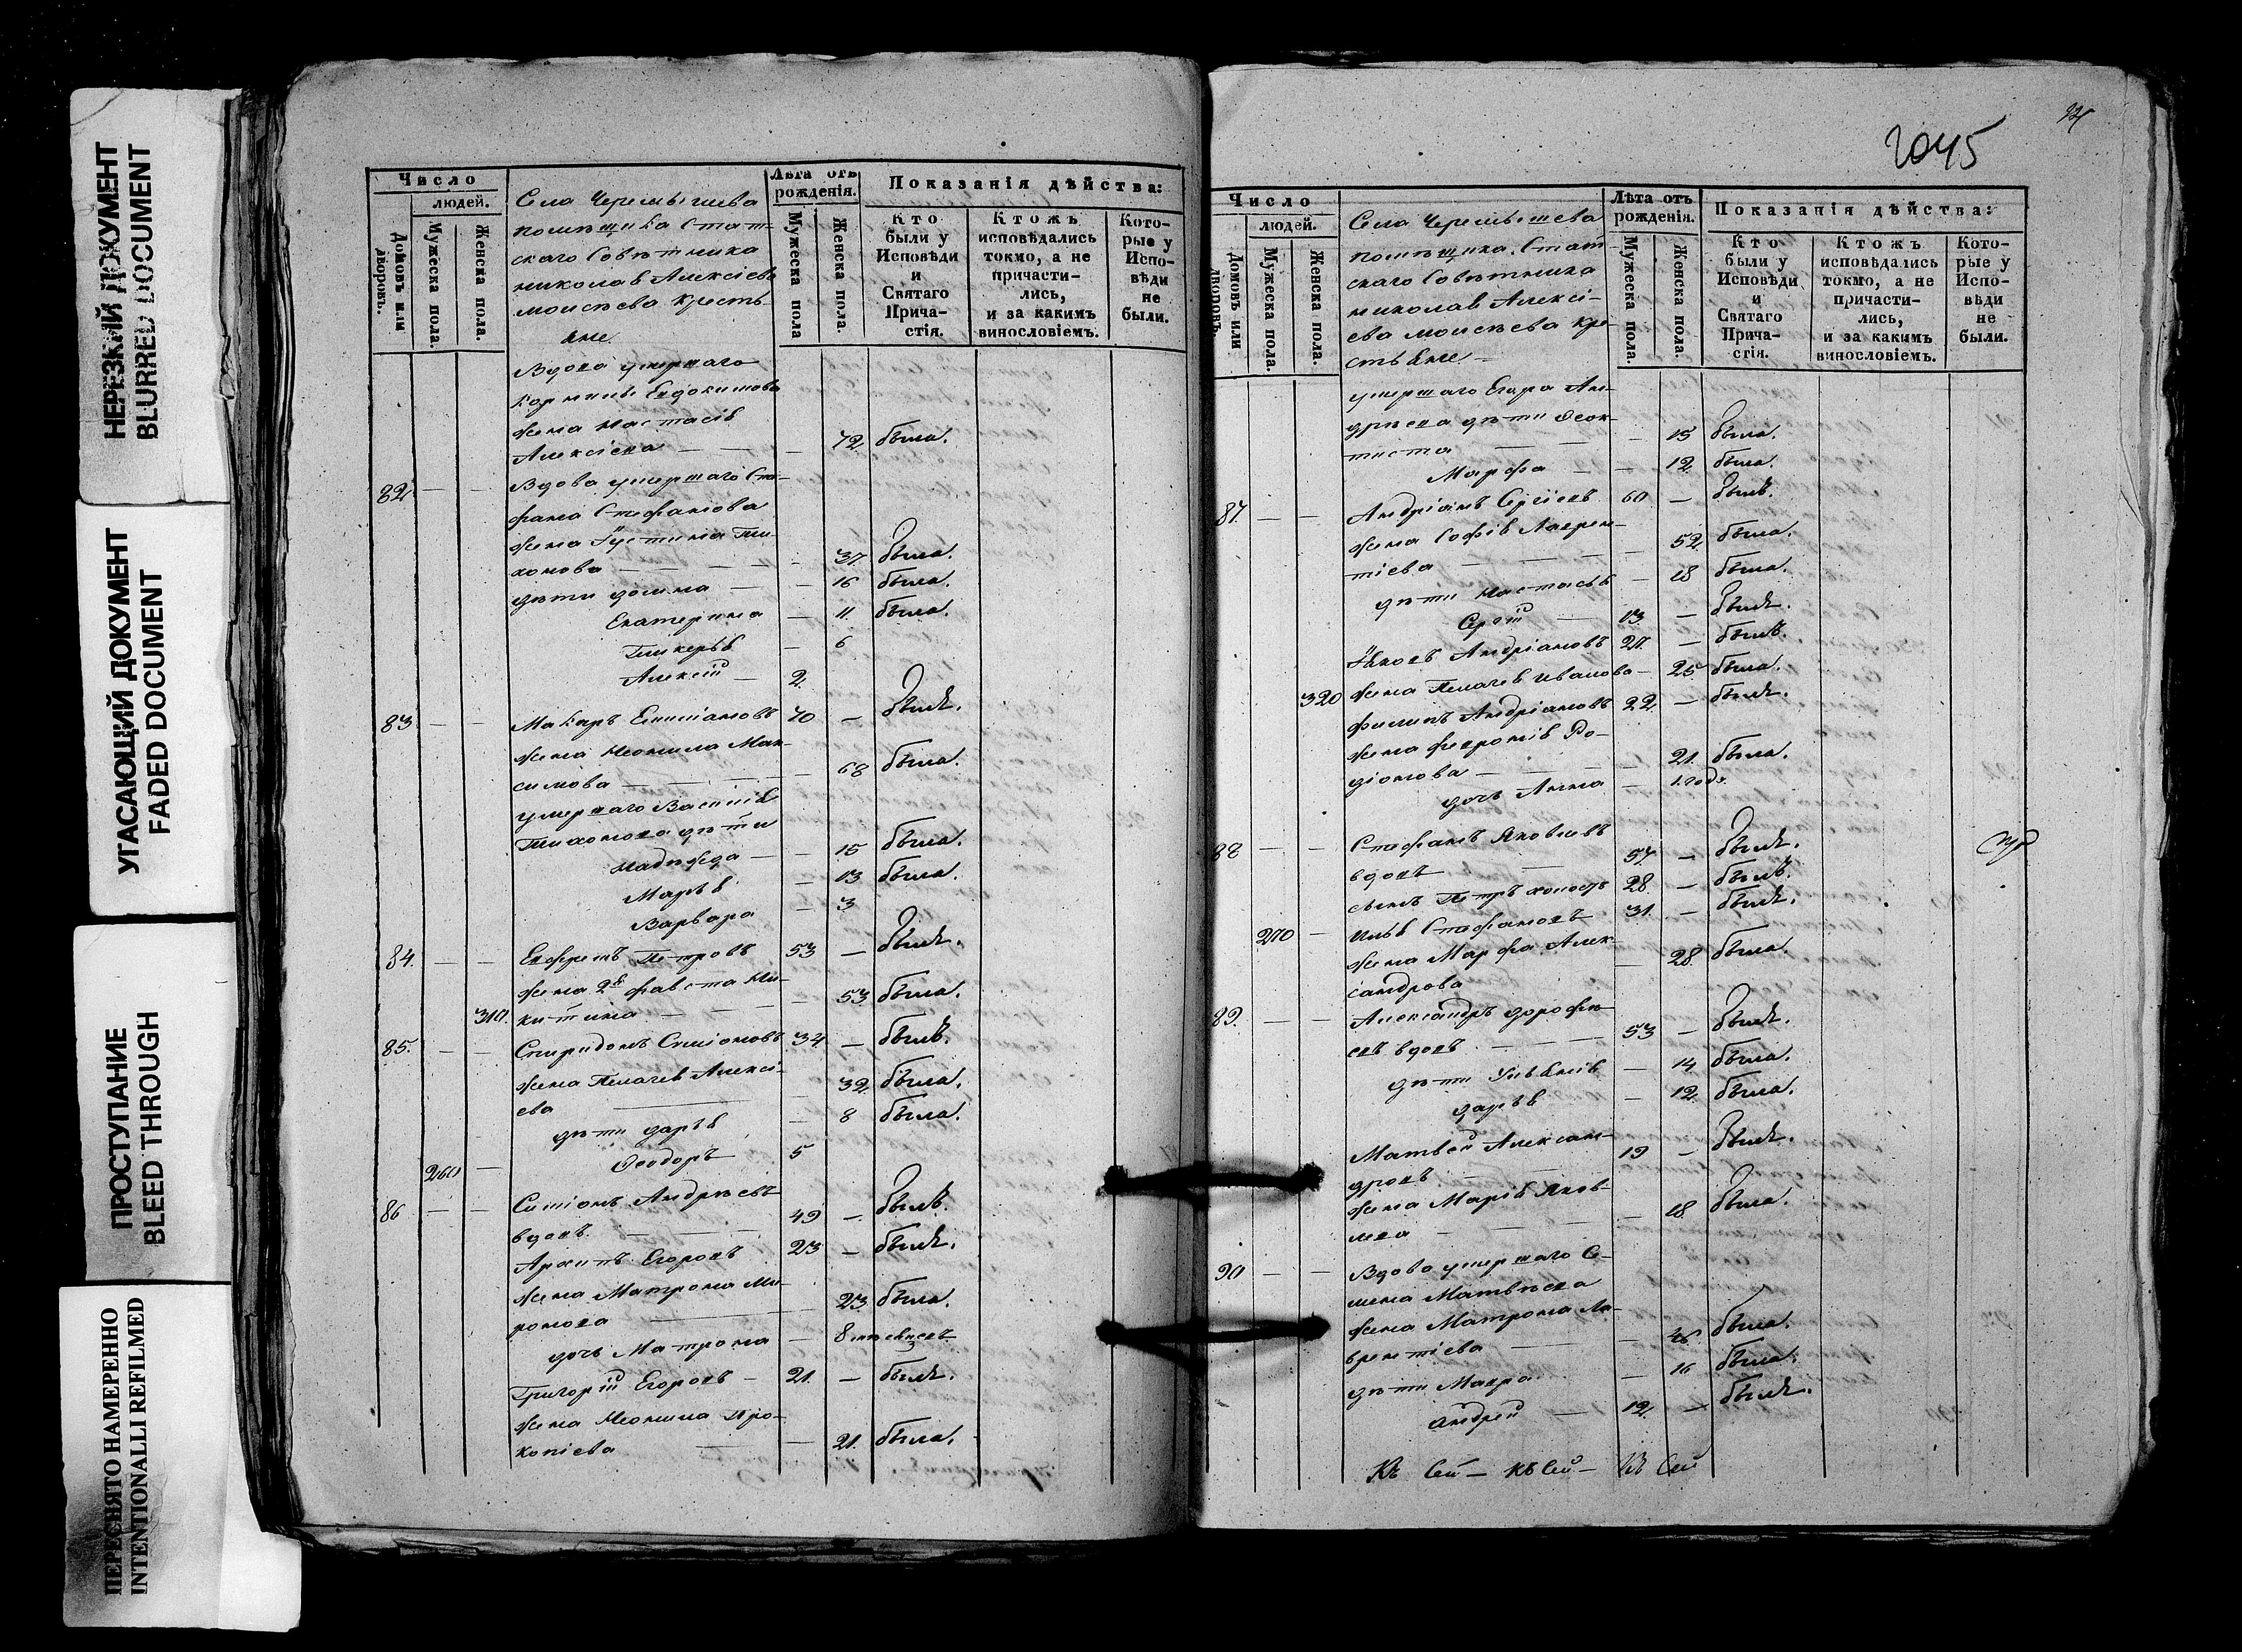 НЕРЕЗКИЙ ДОКУМЕНТ
BLURRED DOCUMENT
УГАСАЮЩИЙ ДОКУМЕНТ
FADED DOCUMENT
ПРОСТУПАНИЕ
BLEED THROUGH
ПЕРЕСНЯТО НАМЕРЕННО
INTENTIONALLI REFILMED
Число
людей.
Домовъ или дворовъ.
Мужеска пола.
Женска пола.
Села Черемышева
помѣщика Стат-
скаго Совѣтника
николая Алексіева
моисѣева кресть-
яне
Лѣта отъ рожденія.
Мужеска пола
Женска пола.
Показанія дѣйства:
Кто были у Исповѣди и Святаго Прича-стія.
Ктожъ исповѣдались токмо, а не причасти-лись, и за какимъ винословіемъ.
Кото-рые у Испо-вѣди не были.
Вдова умершаго
Евдокимова
жена настасія
Алексіева — — 72 была.
82 — — Вдова умершаго Сте-
фана Стефанова
жена Іустина Ти-
хонова — 37 была.
дѣти — 16 была.
Екатерина — 11 была.
Гликерья — 6
Алексій — 2.
83 — — Макаръ 70 — былъ.
жена неонила Мак-
симова — 68 была.
умершаго Василія
Тихонова дѣти
надѣжда — 15 была.
Марья — 13 была.
Варвара — 3
84. — — Ефремъ Петровъ 53 — былъ.
жена 2я фавста Ни-
310. китина — — 53 была.
85. — — Спиридонъ Симіоновъ 34 — былъ.
жена Пелагея Алексі-
ева — 32 была.
дѣти дарья — 8 была.
Ѳеодоръ 5
260 —
86 — — Симіонъ Андрѣевъ
вдовъ — 49 — былъ.
Архипъ Егоровъ 23 — былъ.
жена Матрона Ми-
ронова — 23 была.
дочь Матрона — 8
Григорій Егоровъ — 21. — былъ.
жена Неонила Про-
копіева — — 21. была.
2045
Число
людей.
Домовъ или дворовъ.
Мужеска пола.
Женска пола.
Села Черемышева
помѣщика Стат-
скаго Совѣтника
николая Алексі-
ева моисѣева кре-
стьяне —
Лѣта отъ рожденія.
Мужеска пола.
Женска пола.
Показанія дѣйства:
Кто были у Исповѣди и Святаго Прича-стія.
Ктожъ исповѣдались токмо, а не причасти-лись, и за какимъ винословіемъ.
Кото-рые у Испо-вѣди не были.
умершаго Егора Ан-
дрѣева дѣти Ѳеок-
тиста — 15 была.
Марфа — — 12 была.
87. — — Андріанъ Сергіевъ 60 — былъ.
жена Софія Лаврен-
тіева — 52 была.
дѣти настасья — 18 была.
Сергій — 13 — былъ.
Яковъ Андріановъ 27. — былъ.
320 жена Пелагея иванова — 25 была.
филипъ Андріановъ 22. — былъ.
жена февронія Ро-
діонова — 21. была.
дочь Анна — 1. годъ
88 — — Стефанъ Яковлевъ
вдовъ — 57. — былъ.
сынъ Петръ холостъ 28 — былъ.
270 — илья Стефановъ 31. — былъ.
жена Марфа Алек-
сандрова — 28. была.
89. — — Александръ дорофѣ-
евъ вдовъ — 53 — былъ.
дѣти Ульянія — 14 была.
дарья — 12 была.
Матвей Алексан-
дровъ 19 — былъ.
жена Марія Яков-
лева — 18 была.
90 — — Вдова умершаго Се-
мена Матвѣева
жена Матрона Ла-
врентіева — была.
дѣти Мавра — 16 была.
андрей — 12. — былъ.